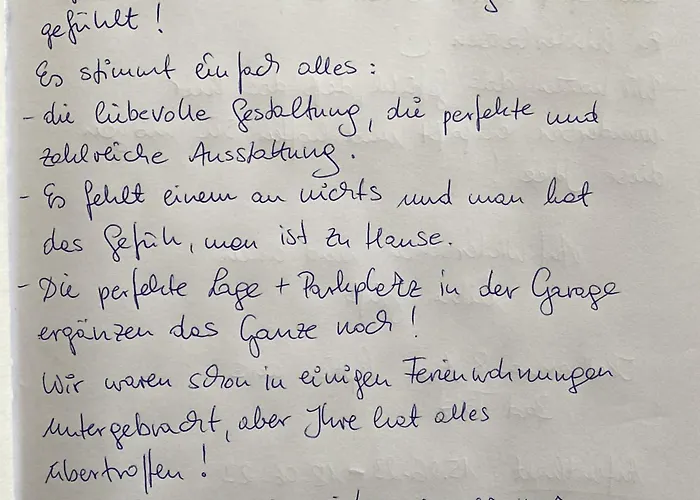 gefühlt !
Es stimmt einfach alles :
- die liebevolle Gestaltung, die perfekte und
zahlreiche Ausstattung.
- Es fehlt einem an nichts und man hat
das Gefüh, man ist zu Hause.
- Die perfekte Lage + Parkplatz in der Garage
ergänzen das Ganze noch !
Wir waren schon in einigen Ferienwohnungen
untergebracht, aber Ihre hat alles
übertroffen !